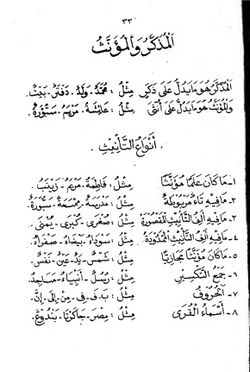 ٣٣
المُذَكَّرُ وَالمُؤَنَّثُ
المُذَكَّرُ هُوَ مَا يَدُلُّ عَلَى ذَكَرٍ مِثْلُ: مُحَمَّدٌ، وَلَدٌ، دَفْتَرٌ، بَيْتٌ.
وَالمُؤَنَّثُ هُوَ مَا يَدُلُّ عَلَى أُنْثَى مِثْلُ: عَائِشَةُ، مَرْيَمُ، سَبُّورَةٌ.
أَنْوَاعُ التَّأْنِيْثِ:
١- مَا كَانَ عَلَمًا مُؤَنَّثًا مِثْلُ: فَاطِمَةُ، مَرْيَمُ، زَيْنَبُ.
٢- مَا فِيهِ تَاءٌ مَرْبُوطَةٌ مِثْلُ: مَدْرَسَةٌ، سَبُّورَةٌ.
٣- مَا فِيهِ أَلِفُ التَّأْنِيْثِ المَقْصُورَةُ مِثْلُ: صُغْرَى، كُبْرَى، يُمْنَى.
٤- مَا فِيهِ أَلِفُ التَّأْنِيْثِ المَمْدُودَةُ مِثْلُ: سَوْدَاءُ، بَيْضَاءُ، صَفْرَاءُ.
٥- مَا كَانَ مُؤَنَّثًا مَجَازِيًّا مِثْلُ: شَمْسٌ، يَدٌ، عَيْنٌ، نَفْسٌ.
٦- جَمْعُ التَّكْسِيْرِ مِثْلُ: رُسُلٌ، أَنْبِيَاءُ، مَسَاجِدُ.
٧- الحُرُوفُ مِثْلُ: بَ، فَ، فِي، مِنْ، إِلَى، إِنَّ.
٨- أَسْمَاءُ القُرَى مِثْلُ: مِصْرَ، جَاكَرْتَا، بَنْدُوْنْج.